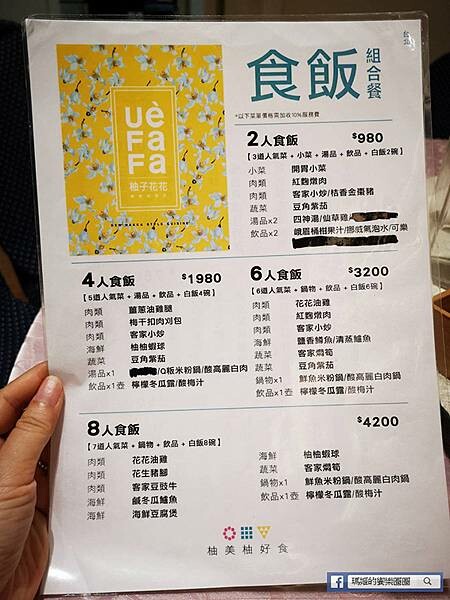 食飯
組合餐
*以下菜單價格需加收10%服務費
Uè
FaFa
柚子花花
NEW HAKKA STYLE CUISINE
2人食飯 $980
【3道人氣菜 + 小菜 + 湯品 + 飲品 + 白飯2碗】
小菜 開胃小菜
肉類 紅麴燉肉
肉類 客家小炒/桔香金棗豬
蔬菜 豆角紫茄
湯品x2 四神湯/仙草雞
飲品x2 峨眉桶柑果汁/挪威氣泡水/可樂
4人食飯 $1980
【5道人氣菜 + 湯品 + 飲品 + 白飯4碗】
肉類 薑蔥油雞腿
肉類 梅干扣肉刈包
肉類 客家小炒
海鮮 柚柚蝦球
蔬菜 豆角紫茄
湯品x1 /Q粄米粉鍋/酸高麗白肉
飲品x1壺 檸檬冬瓜露/酸梅汁
6人食飯 $3200
【6道人氣菜 + 鍋物 + 飲品 + 白飯6碗】
肉類 花花油雞
肉類 紅麴燉肉
肉類 客家小炒
海鮮 鹽香鱘魚/清蒸鱸魚
蔬菜 客家燜筍
蔬菜 豆角紫茄
鍋物x1 鮮魚米粉鍋/酸高麗白肉鍋
飲品x1壺 檸檬冬瓜露/酸梅汁
8人食飯 $4200
【7道人氣菜 + 鍋物 + 飲品 + 白飯8碗】
肉類 花花油雞
肉類 花生豬腳
肉類 客家豆豉牛
海鮮 鹹冬瓜鱸魚
海鮮 海鮮豆腐煲
海鮮 柚柚蝦球
蔬菜 客家燜筍
鍋物x1 鮮魚米粉鍋/酸高麗白肉鍋
飲品x1壺 檸檬冬瓜露/酸梅汁
柚美柚好食
瑪姬的饗樂團圈